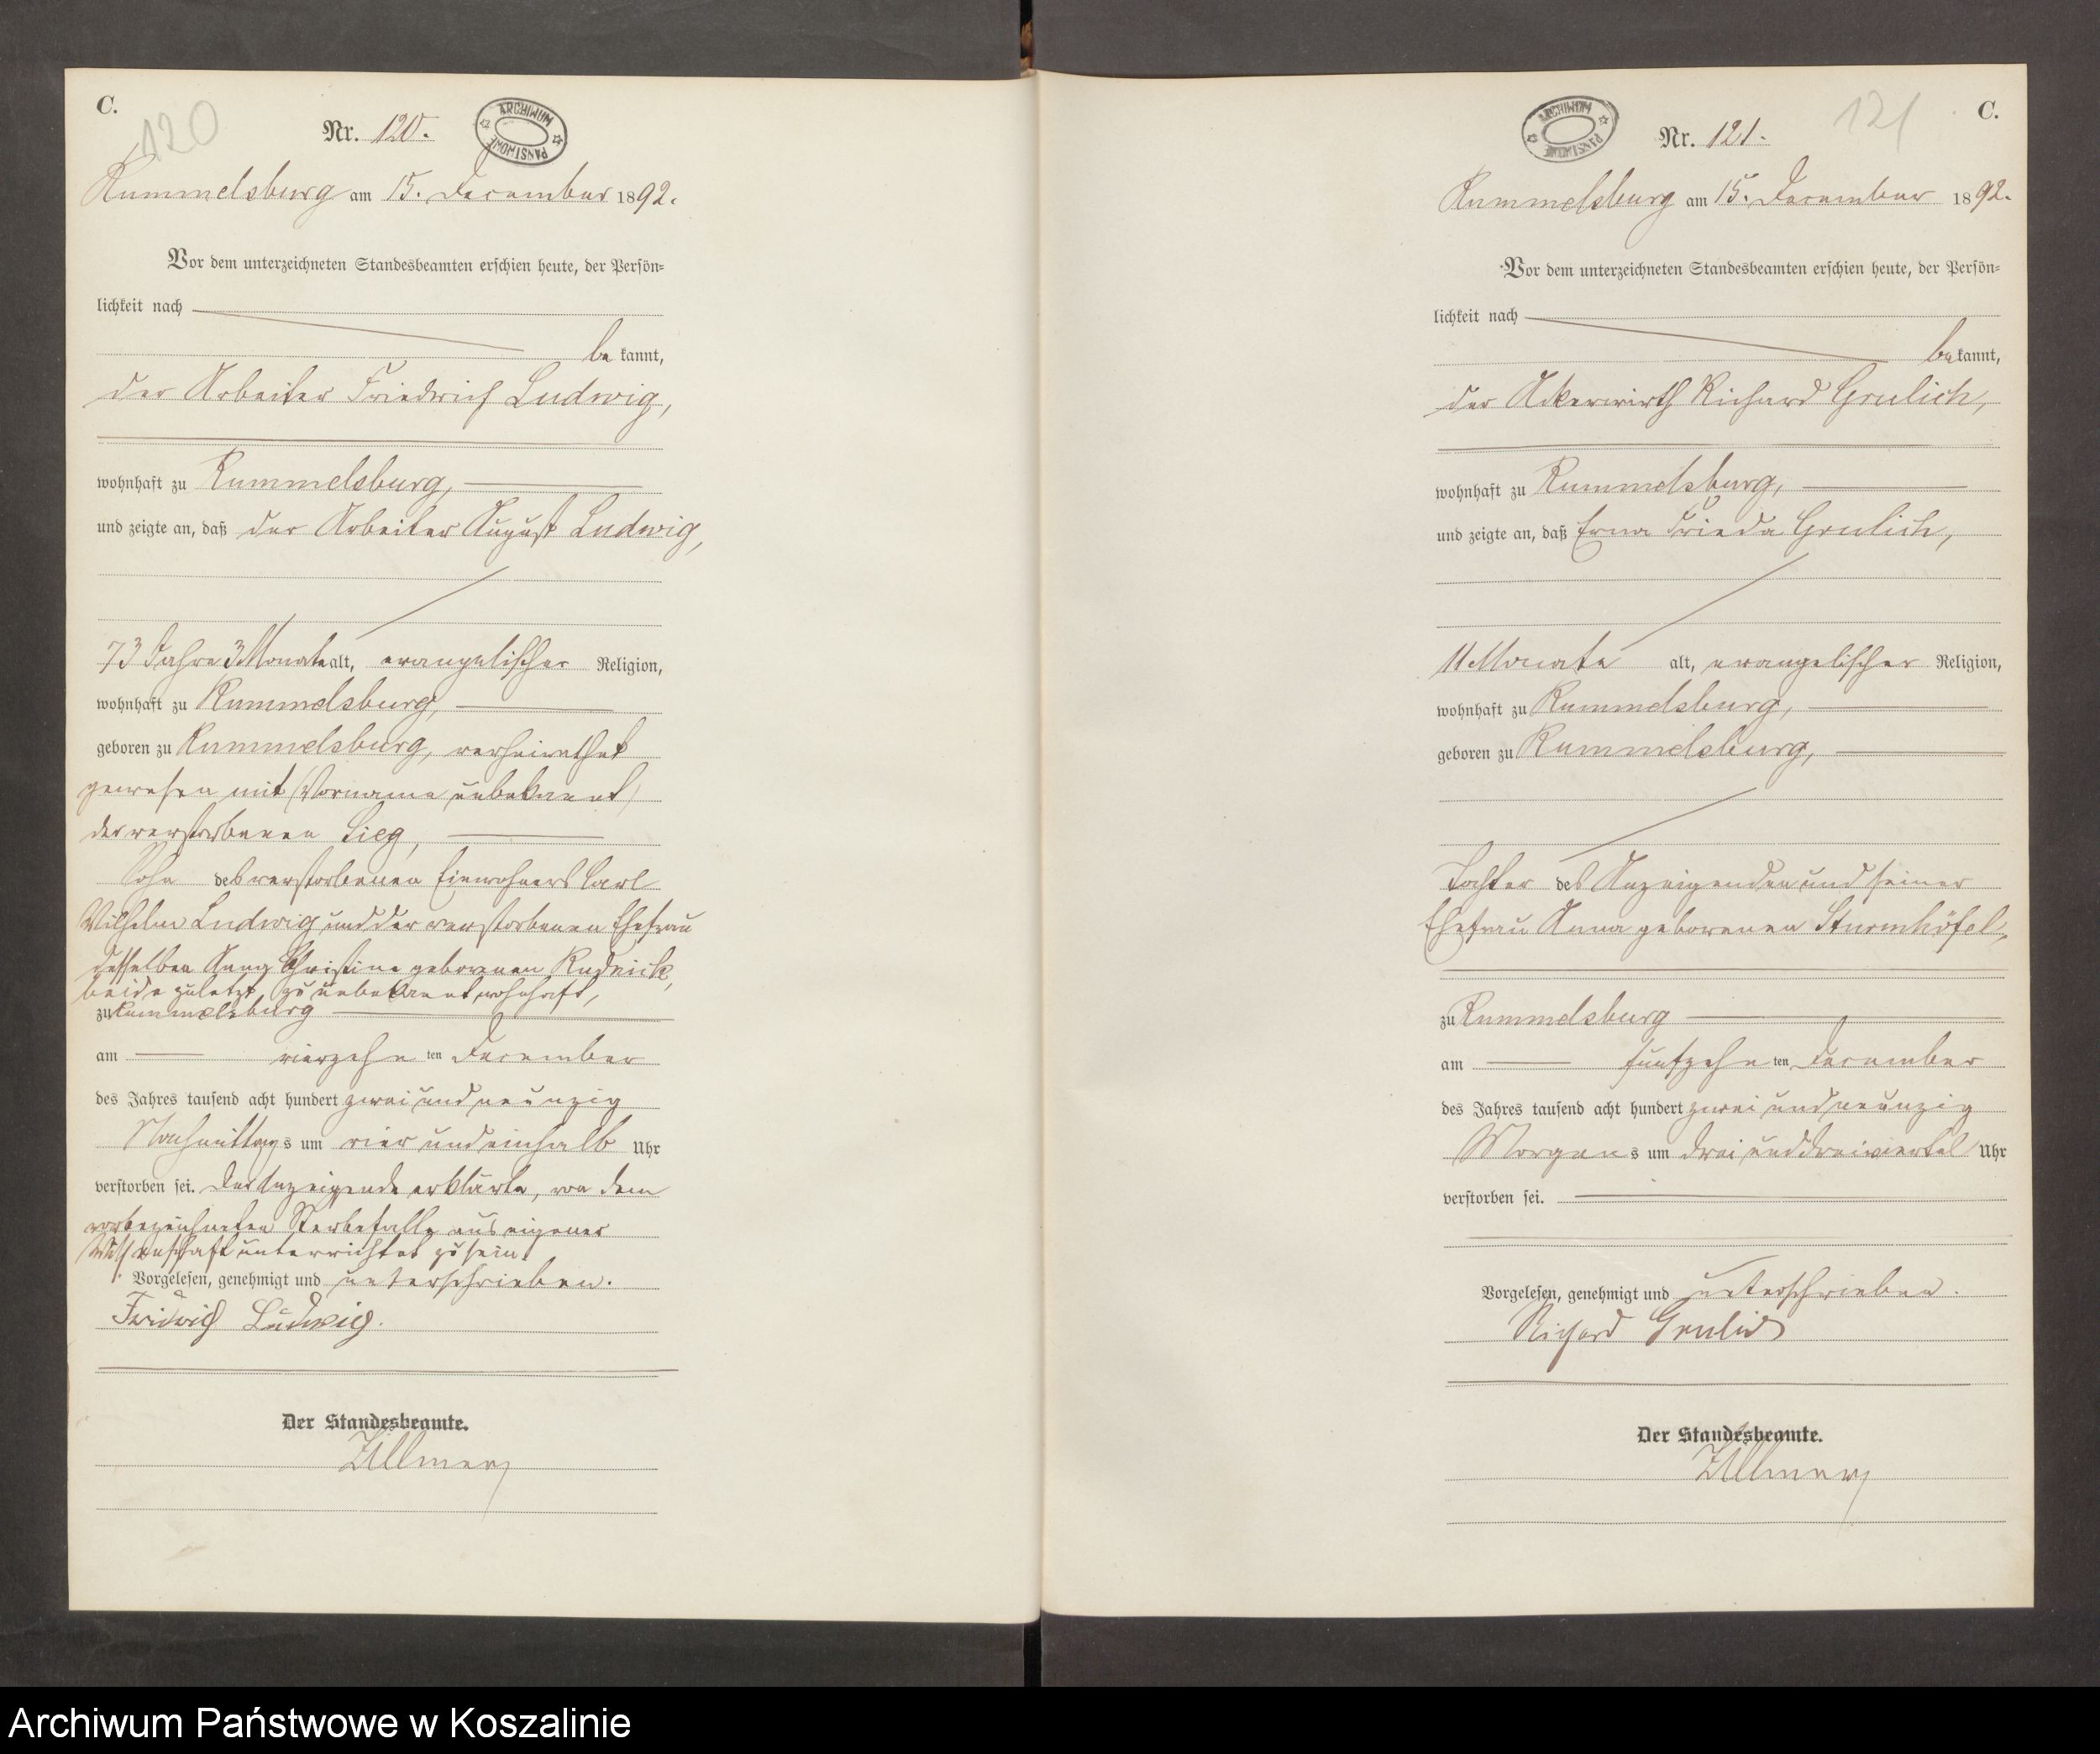 C.
120
Nr. 120.
ARCHIWUM PAŃSTWOWE
Rummelsburg am 15. December 1892.
Vor dem unterzeichneten Standesbeamten erschien heute, der Persön-
lichkeit nach
be kannt,
der Arbeiter Friedrich Ludwig,
wohnhaft zu Rummelsburg,
und zeigte an, daß der Arbeiter August Ludwig,
73 Jahre 3 Monate alt, evangelischer Religion,
wohnhaft zu Rummelsburg,
geboren zu Rummelsburg, verheirathet
gewesen mit (Vorname unbekannt)
der verstorbenen Sieg,
Sohn des verstorbenen Einwohners Carl
Wilhelm Ludwig und der verstorbenen Ehefrau
desselben Anna Christine geborenen Rudnick,
beide zuletzt zu unbekannt wohnhaft,
zu Rummelsburg
am vierzehn ten December
des Jahres tausend acht hundert zwei und neunzig
Nachmittags um vier und einhalb Uhr
verstorben sei. Der Anzeigende erklärte, von dem
vorbezeichneten Sterbefalle aus eigener
Wissenschaft unterrichtet zu sein.
Vorgelesen, genehmigt und unterschrieben.
Fridrich Ludwig.
Der Standesbeamte.
C.
121
Nr. 121.
ARCHIWUM PAŃSTWOWE
Rummelsburg am 15. December 1892.
Vor dem unterzeichneten Standesbeamten erschien heute, der Persön-
lichkeit nach
be kannt,
der Ackerwirth Richard Grulich,
wohnhaft zu Rummelsburg,
und zeigte an, daß Erna Frieda Grulich,
11 Monate alt, evangelischer Religion,
wohnhaft zu Rummelsburg,
geboren zu Rummelsburg,
Tochter des Anzeigenden und seiner
Ehefrau Anna geborenen Sturmhöfel,
zu Rummelsburg
am fünfzehn ten December
des Jahres tausend acht hundert zwei und neunzig
Morgens um drei und dreiviertel Uhr
verstorben sei.
Vorgelesen, genehmigt und unterschrieben.
Richard Grulich
Der Standesbeamte.
Archiwum Państwowe w Koszalinie